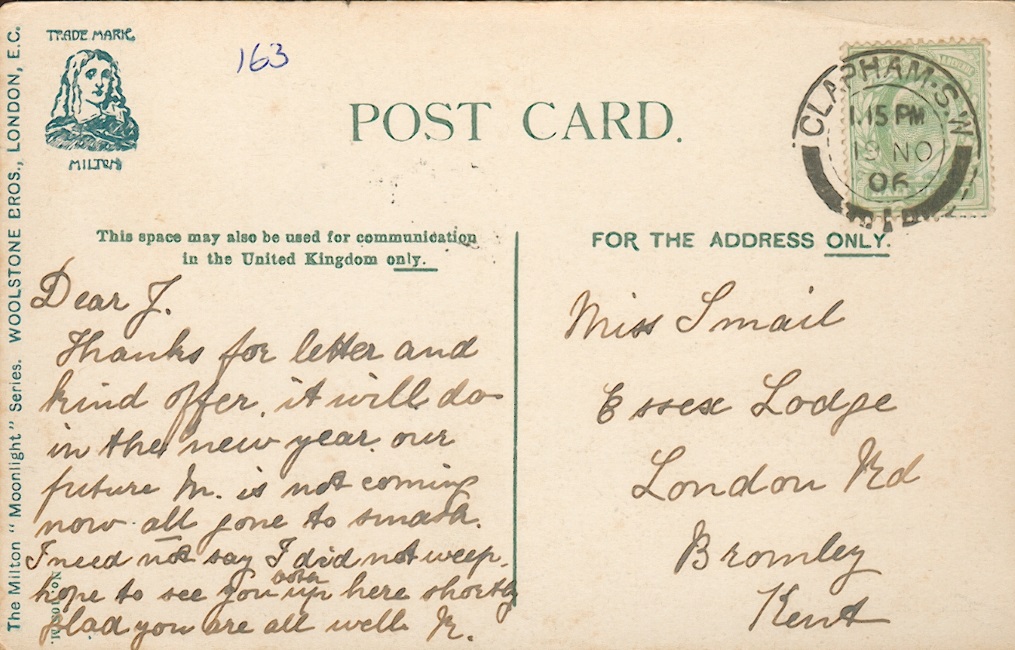 TRADE MARK.
MILTON
163
POST CARD.
CLAPHAM·S.W
1.15 PM
NO
06
The Milton "Moonlight" Series. WOOLSTONE BROS., LONDON, E.C.
This space may also be used for communication
in the United Kingdom only.
FOR THE ADDRESS ONLY.
Dear J.
Thanks for letter and
kind offer, it will do
in the new year. our
future M. is not coming
now all gone to smash.
I need not say I did not weep.
hope to see you both up here shortly
glad you are all well. K.
Miss Smail
Essex Lodge
London Rd
Bromley
Kent